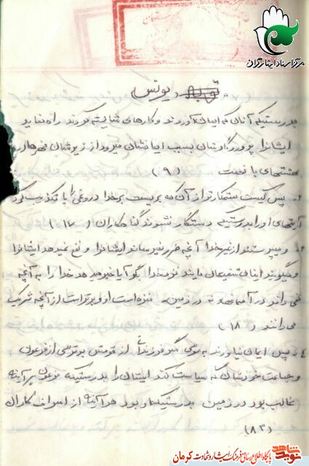 یونس
بدرستیکه آنان که ایمان آوردند و کارهای شایسته کردند راه نماید
ایشانرا پروردگارشان بسبب ایمانشان میرود از زیرشان نهرها در
بهشتهای با نعمت (۹)
پس کیست ستمکارتر از آن که بربست بر خدا دروغی را یا تکذیب کرد
آیتهای او را بدرستیکه رستگار نشوند گناهکاران (۱۷)
و میپرستند از غیر خدا آنچه ضرر نمیرساند ایشانرا و نفع نمیدهد ایشانرا
و میگویند اینان شفیعان مایند نزد خدا بگو آیا خبر میدهید خدا را به آنچه
نمی‌داند در آسمانها و نه در زمین منزه است او و برتر است از آنچه شریک
می‌دانند (۱۸)
پس ایمان نیاوردند به موسی مگر فرزندانی از قومش بر ترس از فرعون
و جماعت خودشان که سیاست کند ایشان را بدرستیکه فرعون هر آینه
غالب بود در زمین بدرستیکه او بود هر آینه از اسراف کاران
(۸۳)
مرکز اسناد ایثارگران
نوید شاهد
پایگاه اطلاع رسانی فرهنگ ایثار و شهادت کرمان